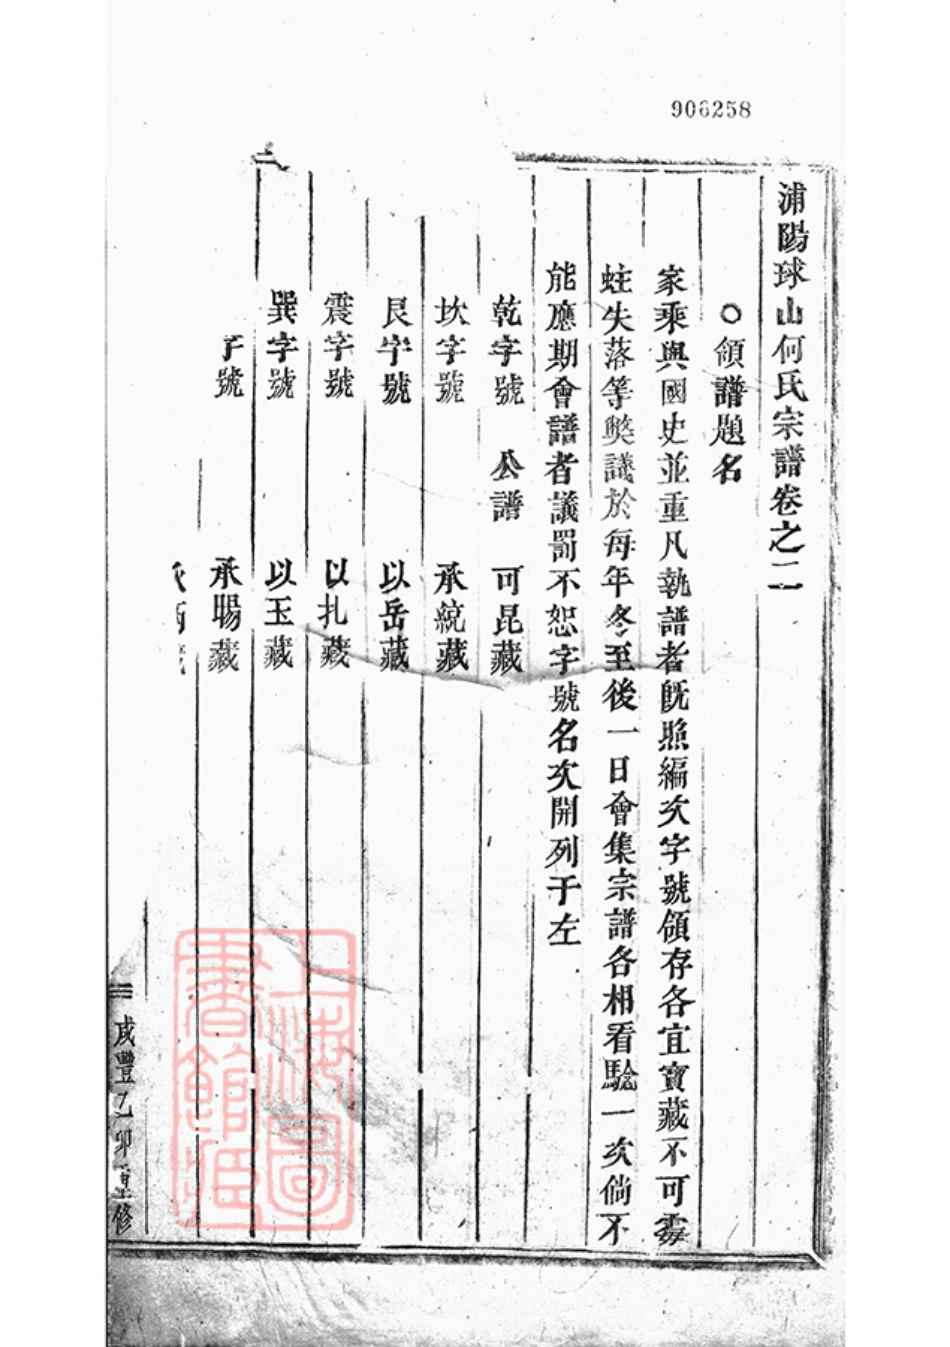 906258
浦陽球山何氏宗譜卷之二
○領譜題名
家乘與國史並重凡執譜者旣照編次字號領存各宜寶藏不可霉
蛀失落等獘議於每年冬至後一日會集宗譜各相看驗一次倘不
能應期會譜者議罰不恕字號名次開列于左
乾字號 公譜 可昆藏
坎字號 承統藏
艮字號 以岳藏
震字號 以扎藏
巽字號 以玉藏
字號 承賜藏
咸豐乙卯重修
上海圖書館藏